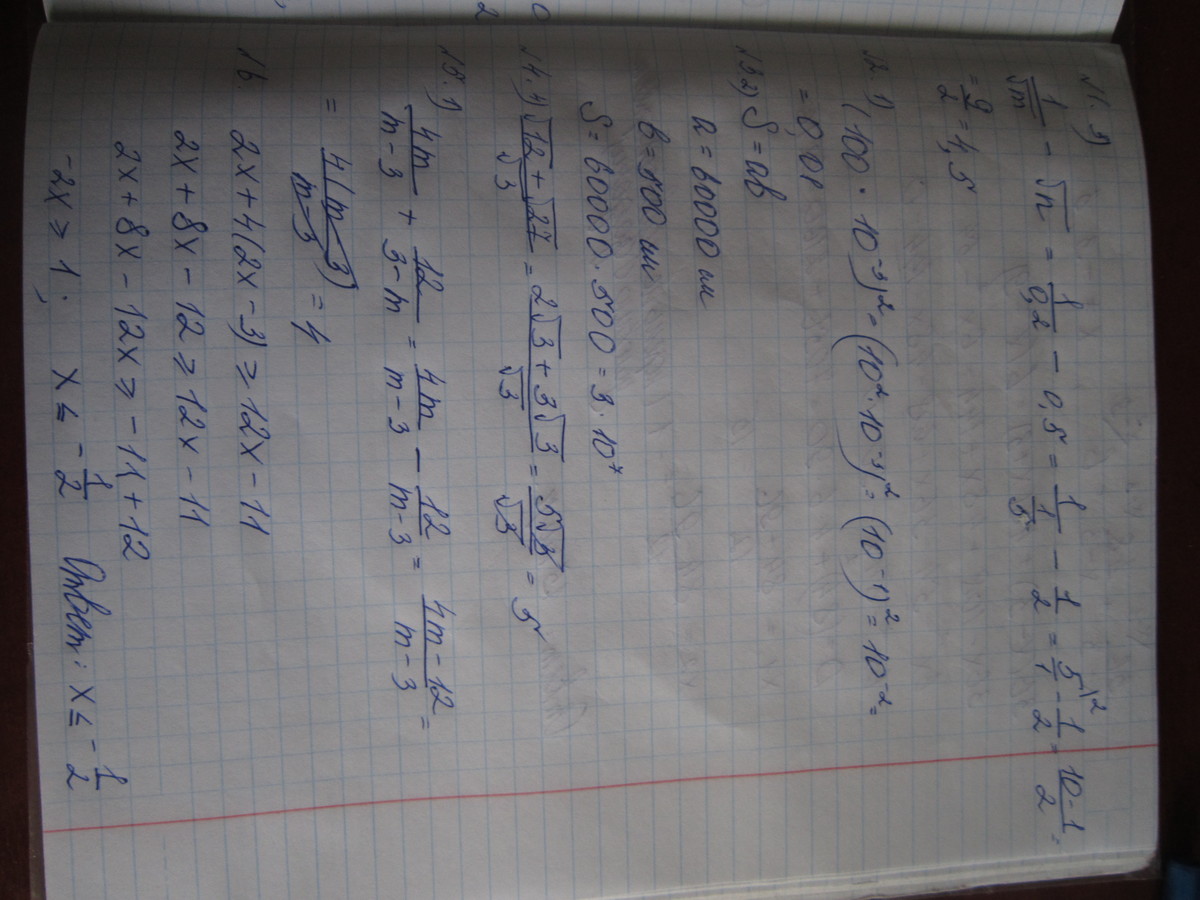 √1. 3)
1/√m - √n = 1/0,2 - 0,5 = 1/(1/5) - 1/2 = 5\2/1 - 1/2 = (10-1)/2 =
= 9/2 = 4,5
√2. 1) (100 · 10⁻³)² = (10² · 10⁻³)² = (10⁻¹)² = 10⁻² =
= 0,01
√3. 2) S = ab
a = 60000 мм
b = 500 мм
S = 60000 · 500 = 3 · 10⁷
√4. 4) (√12 + √27)/√3 = (2√3 + 3√3)/√3 = 5√3/√3 = 5
√5. 1)
4m/(m-3) + 12/(3-m) = 4m/(m-3) - 12/(m-3) = (4m-12)/(m-3) =
= 4(m-3)/(m-3) = 4
√6. 2x + 4(2x - 3) ≥ 12x - 11
2x + 8x - 12 ≥ 12x - 11
2x + 8x - 12x ≥ -11 + 12
-2x ≥ 1; x ≤ -1/2 Ответ: x ≤ -1/2